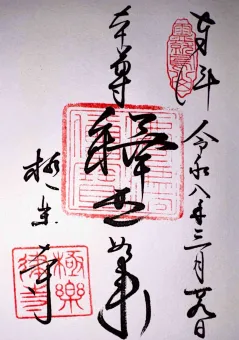 奉拝 令和八年三月廿九日
本尊 釋迦如来
極楽寺
極樂律寺